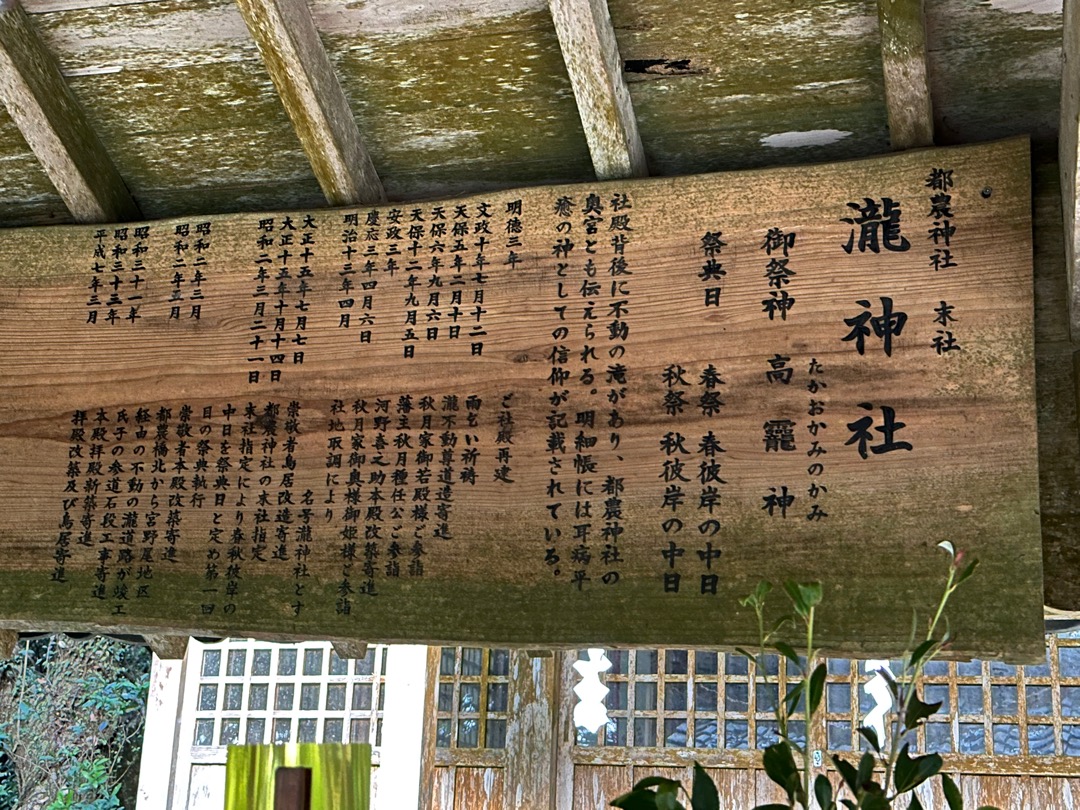 都農神社 末社
瀧神社
たかおかみのかみ
御祭神 高龗神
祭典日 春祭 春彼岸の中日
秋祭 秋彼岸の中日
社殿背後に不動の滝があり、都農神社の
奥宮とも伝えられる。明細帳には耳病平
癒の神としての信仰が記載されている。
明徳三年 ご社殿再建
文政十年七月十二日 雨乞い祈祷
天保五年二月十日 瀧不動尊道造寄進
天保六年九月六日 秋月家御若殿様ご参詣
天保十二年九月五日 藩主秋月種任公ご参詣
安政三年 河野喜之助本殿改築寄進
慶応三年四月六日 秋月家御奥様御姫様ご参詣
明治十三年四月 社地取調により
名号瀧神社とす
大正十五年七月七日 崇敬者鳥居改造寄進
大正十五年十月十四日 都農神社の末社指定
昭和二年三月二十一日 末社指定により春秋彼岸の
中日を祭典日と定め第一回
日の祭典執行
昭和二年三月 崇敬者本殿改築寄進
昭和二年五月 都農橋北から宮野尾地区
経由の不動の瀧道路が竣工
昭和三十一年 氏子の参道石段工事寄進
昭和三十三年 本殿拝殿新築寄進
平成七年三月 拝殿改築及び鳥居寄進